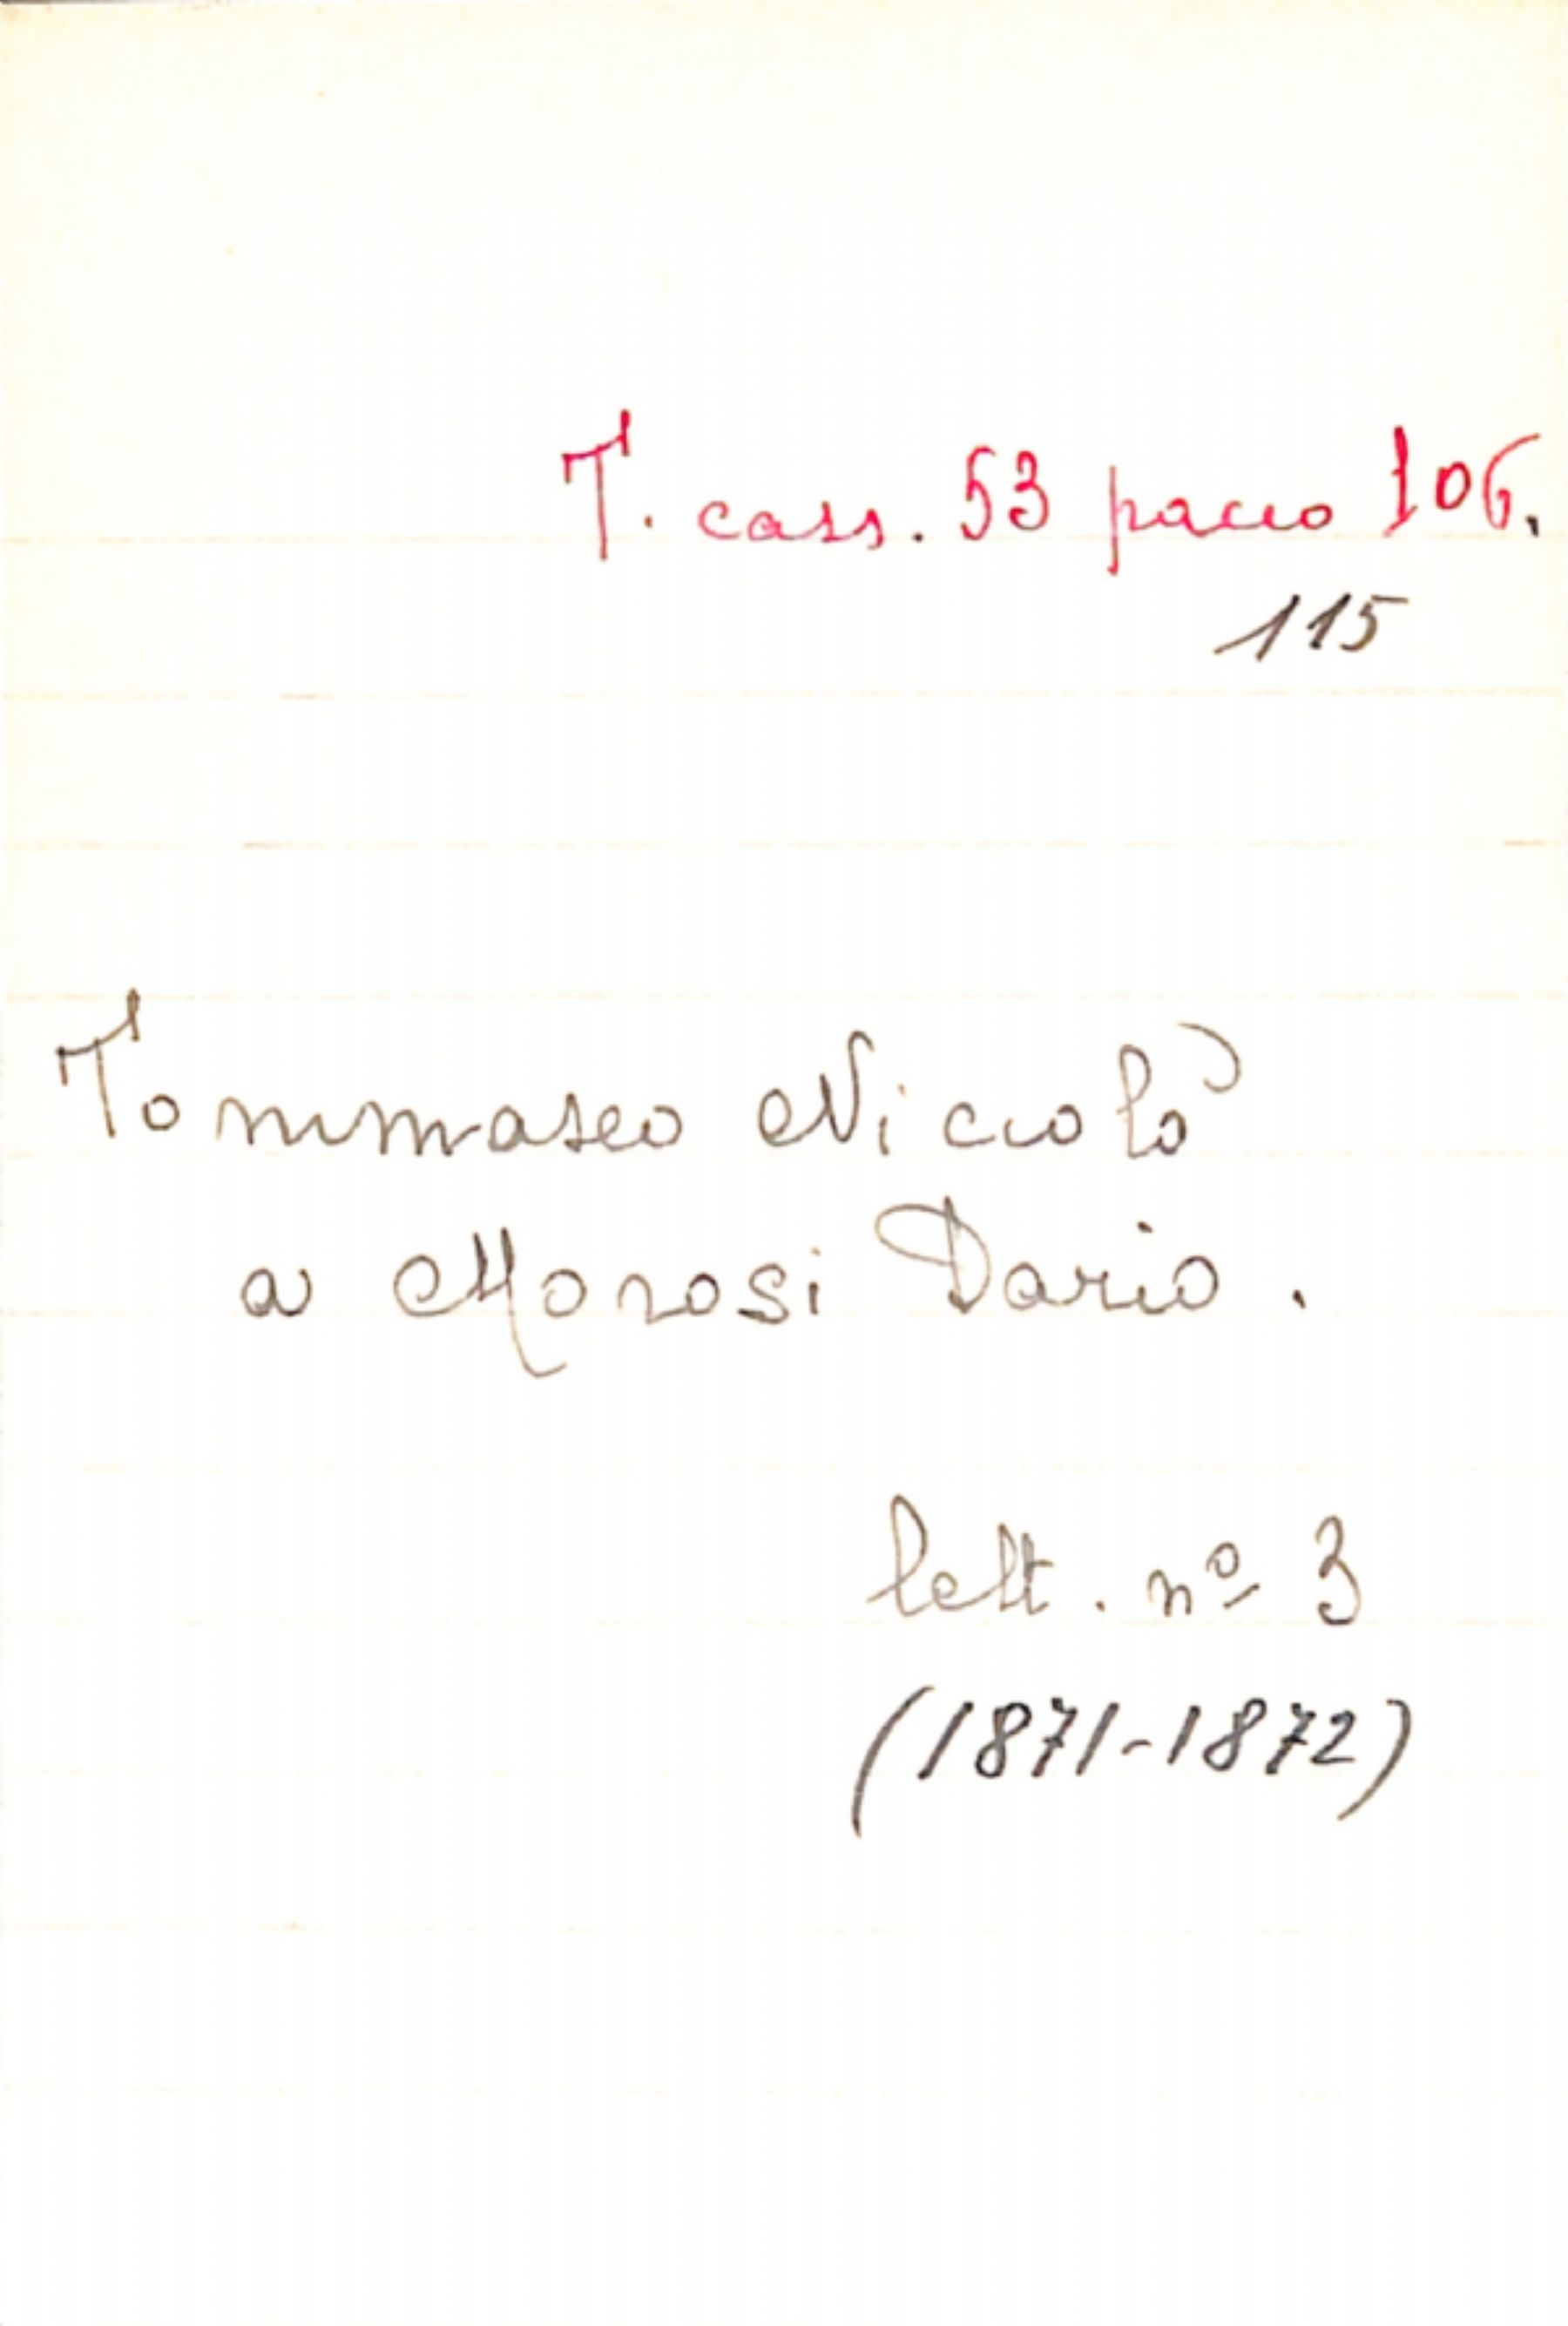 T. cass. 53 pacco 106.
115
Tommaseo Niccolò
a Morosi Dario.
lett. nº 3
(1871-1872)